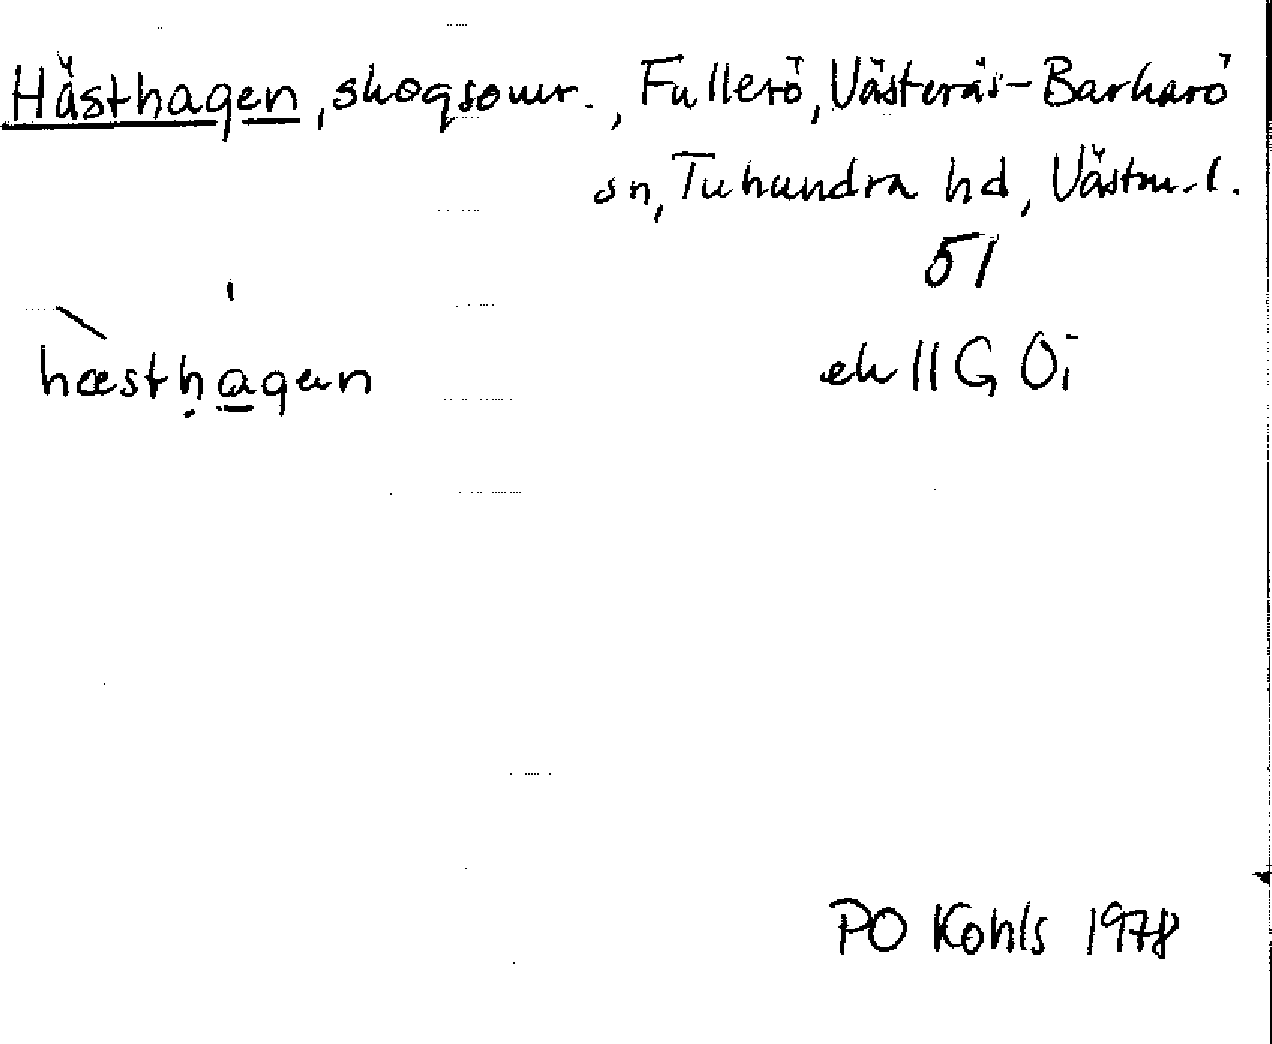 Hästhagen, skogsomr., Fullerö, Västerås-Barkarö
sn, Tuhundra hd, Västm. l.
51
hæsthagen
ek 11G 0i
PO Kohls 1978